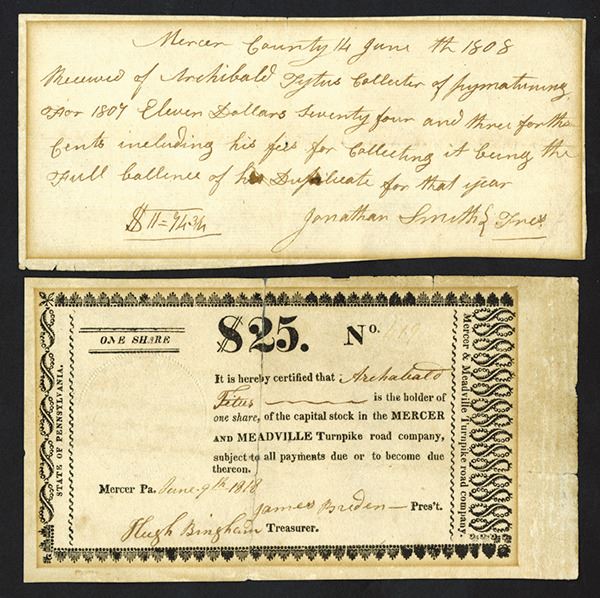 Mercer County 14 June th 1808
Received of Archibald Tytus Collecter of pymatuning
For 1807 Eleven Dollars Seventy four and three forths
Cents including his fees for Collecting it being the
Full ballence of his Duplicate for that year
$11=74¾ Jonathan Smith Tres.
ONE SHARE
$25. No.
It is hereby certified that Archabald
Titus is the holder of
one share, of the capital stock in the MERCER
AND MEADVILLE Turnpike road company,
subject to all payments due or to become due
thereon.
Mercer Pa. June 9th 1818
James Breden Pres't.
Hugh Bingham Treasurer.
STATE OF PENNSYLVANIA.
Mercer & Meadville Turnpike road company.